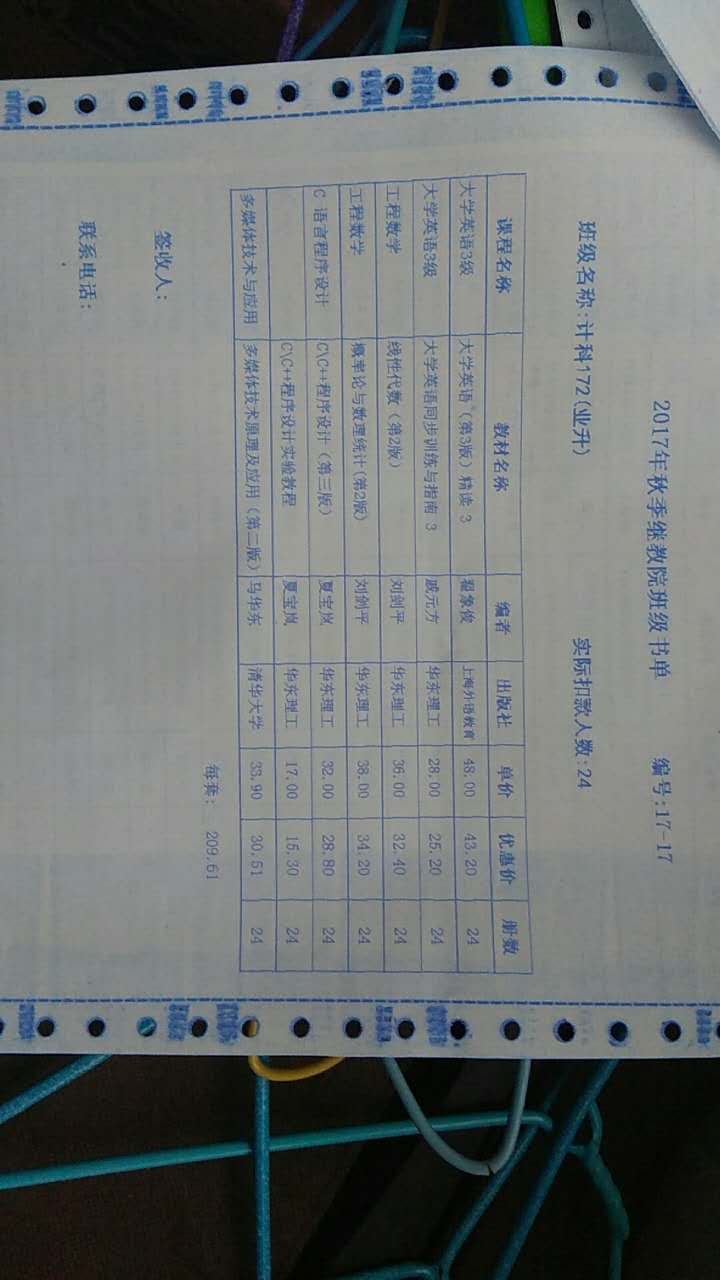 2017年秋季继教院班级书单 编号:17-17
班级名称:计科172(业升) 实际扣款人数:24
课程名称 教材名称 编者 出版社 单价 优惠价 册数
大学英语3级 大学英语（第3版）精读 3 翟象俊 上海外语教育 48.00 43.20 24
大学英语3级 大学英语同步训练与指南 3 戚元方 华东理工 28.00 25.20 24
工程数学 线性代数（第2版） 刘剑平 华东理工 36.00 32.40 24
工程数学 概率论与数理统计(第2版) 刘剑平 华东理工 38.00 34.20 24
C 语言程序设计 C\C++程序设计（第三版） 夏宝岚 华东理工 32.00 28.80 24
C\C++程序设计实验教程 夏宝岚 华东理工 17.00 15.30 24
多媒体技术与应用 多媒体技术原理及应用（第二版） 马华东 清华大学 33.90 30.51 24
每套: 209.61
签收人:
联系电话: